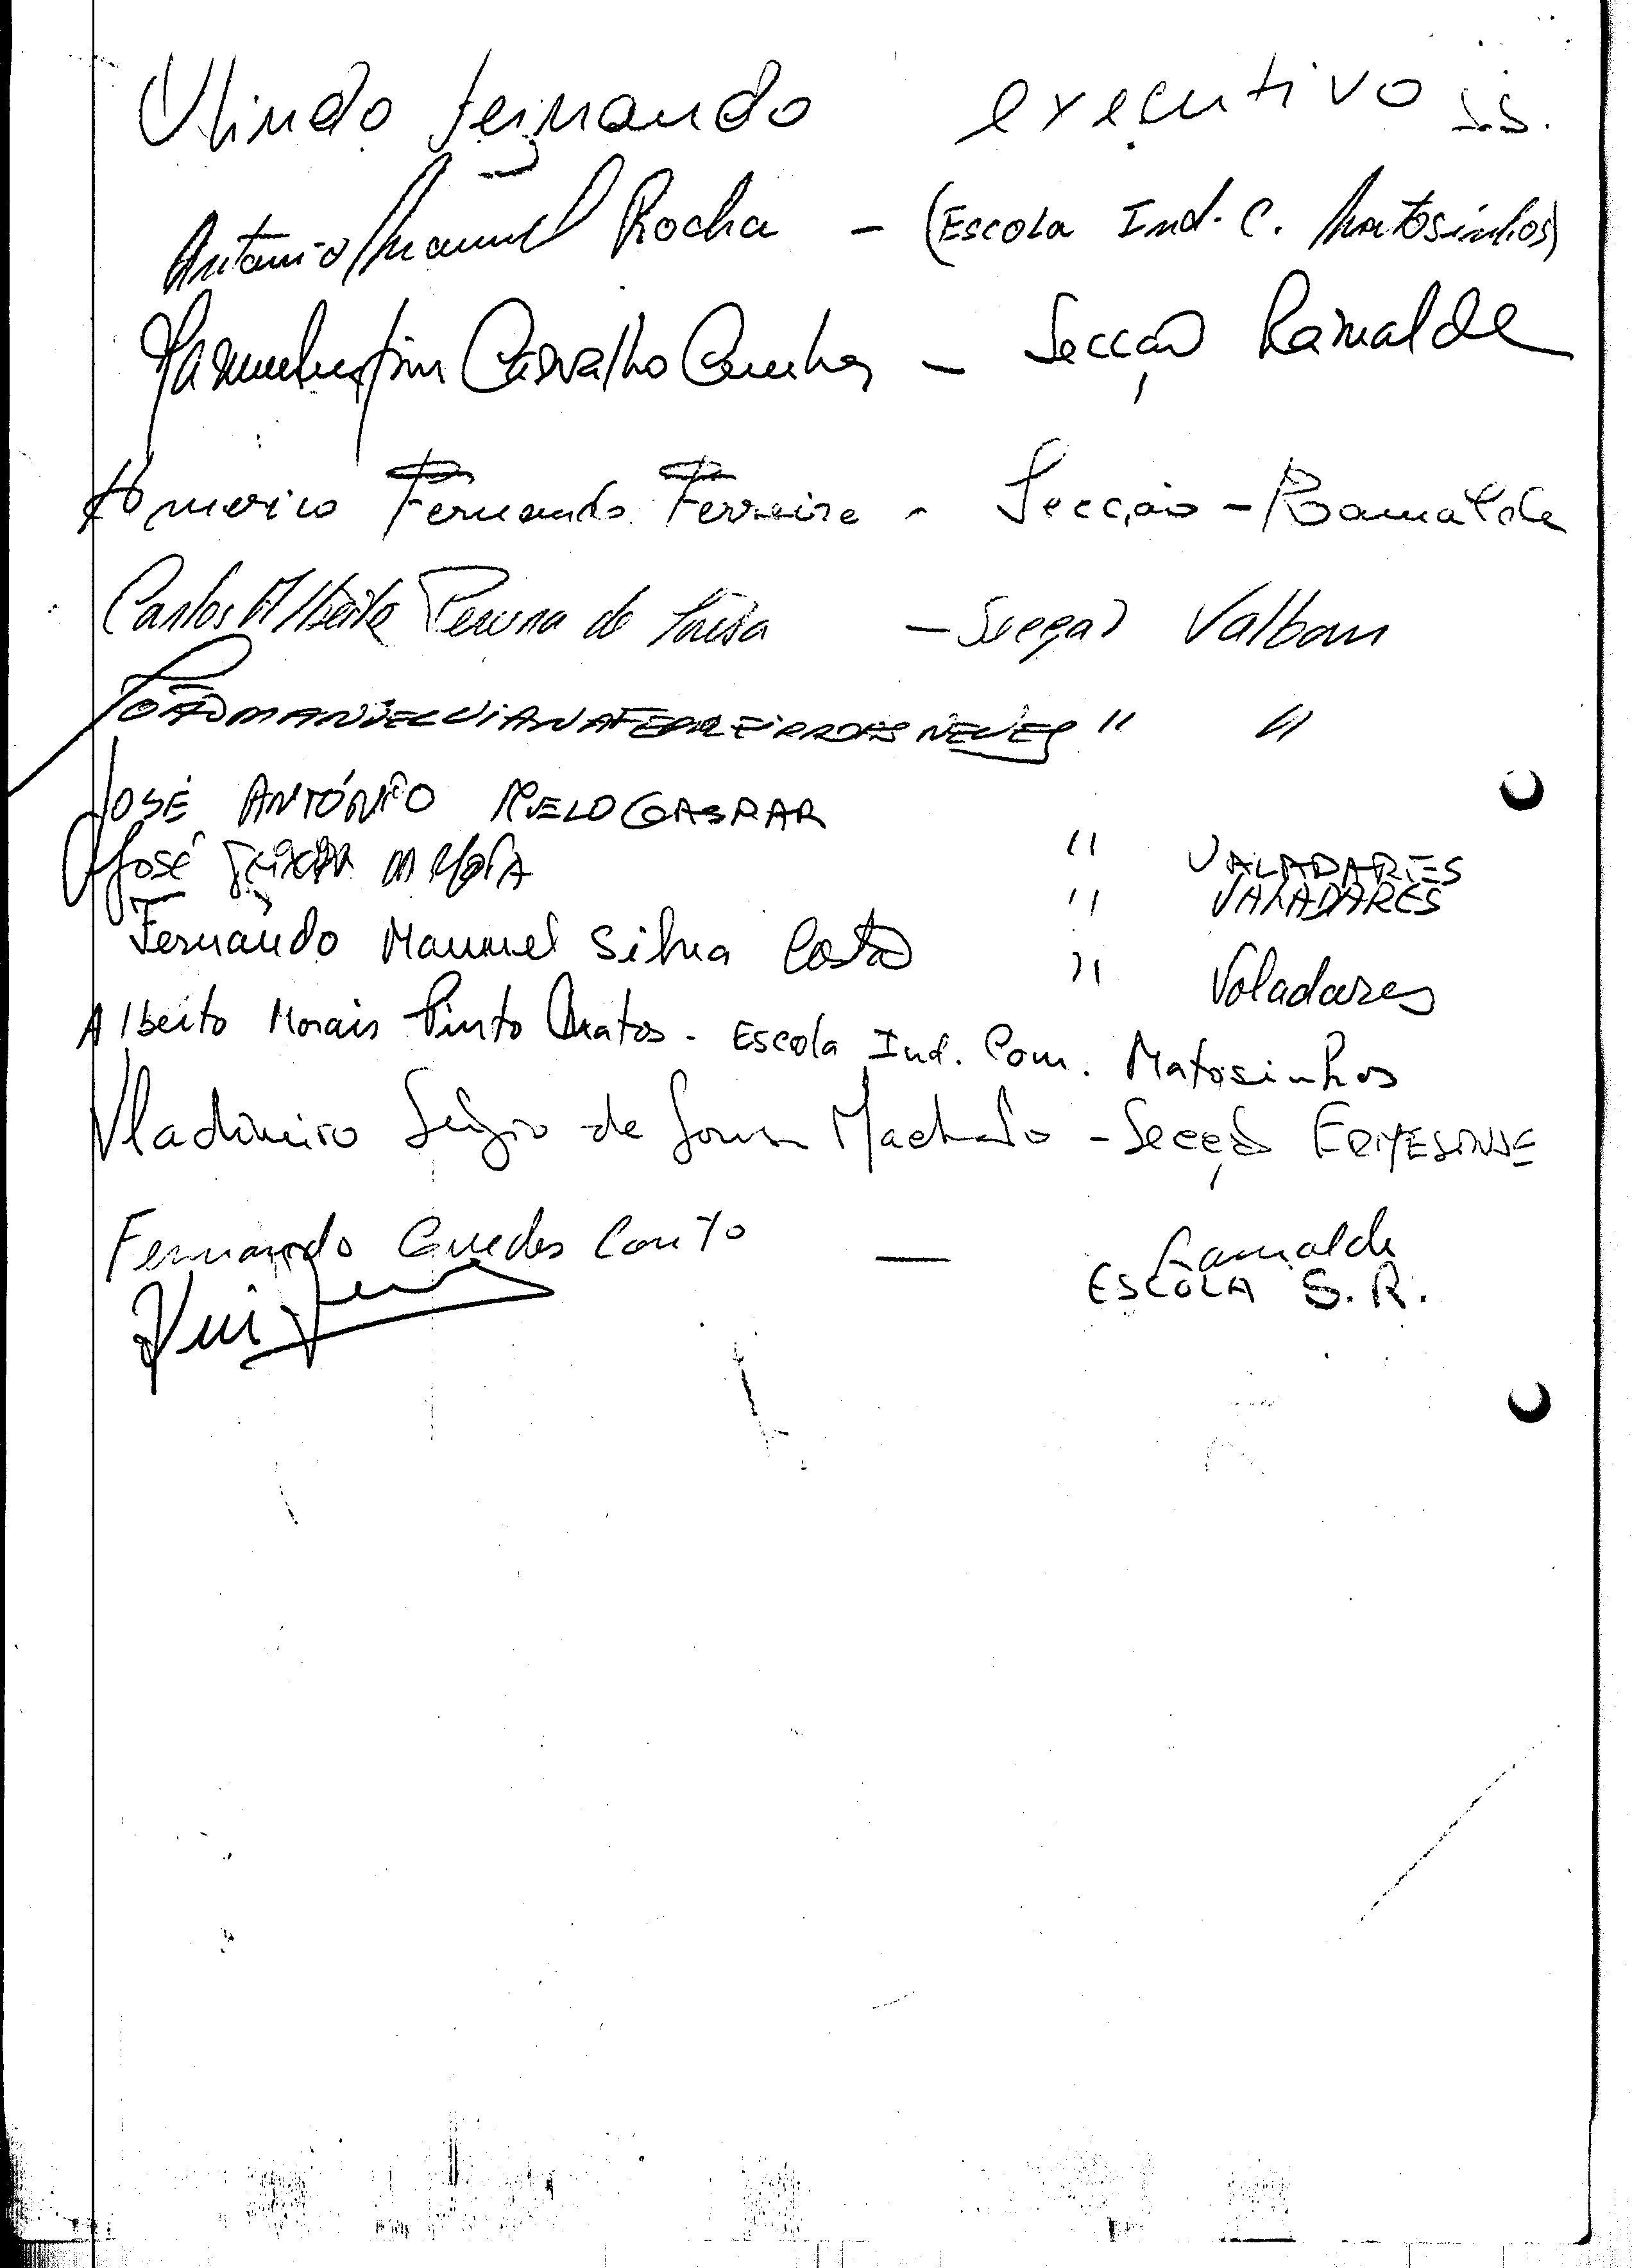 Olindo Fernando executivo S.S.
António Manuel Rocha - (Escola Ind. C. Matosinhos)
Carvalho Cunha - Secção Ramalde
Americo Fernando Ferreira - Secção - Ramalde
Carlos Alberto Pereira de Sousa - Secção Valbom
JOÃO MANUEL VIANA FERREIRA DAS NEVES " "
JOSÉ ANTÓNIO MELO GASPAR " VALADARES
José Teixeira " VALADARES
Fernando Manuel Silva Costa " Valadares
Alberto Morais Pinto Matos - Escola Ind. Com. Matosinhos
Vladimiro Sérgio de Sousa Machado - Secção ERMESINDE
Fernando Guedes Couto — Ramalde
Rui ESCOLA S.R.